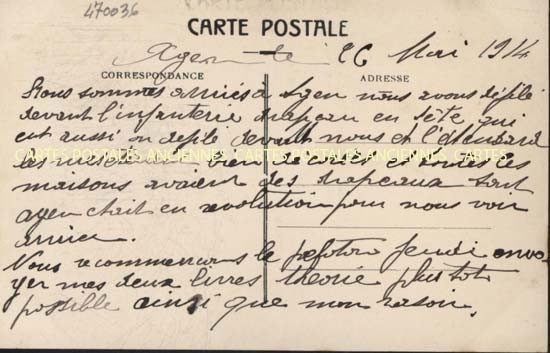 470036
CARTE POSTALE
Agen le 26 Mai 1914
CORRESPONDANCE ADRESSE
Nous sommes arrivés à Agen nous avons défilé
devant l'infanterie drapeau en tête, qui
eut aussi défilé devant nous et l'étendard
CARTES POSTALES ANCIENNES CARTES POSTALES ANCIENNES CARTES
les toutes les
maisons avaient des drapeaux tout
agen était en revolution pour nous voir
arriver.
Nous recommencons le peloton jeudi envo
yer mes deux livres theorie plus tot
possible ainsi que mon rasoir.